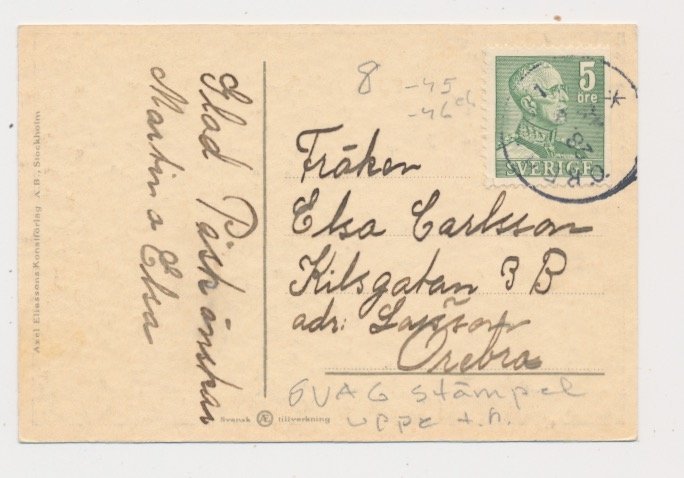 Glad Påsk önskar
Martin o Elsa
Axel Eliassons Konstförlag A.B., Stockholm
8 -45
-46
5
öre
SVERIGE
Fröken
Elsa Carlsson
Kilsgatan 3 B
adr: Larsson
Örebro
SVAG stämpel
uppe t.h.
Svensk Æ tillverkning